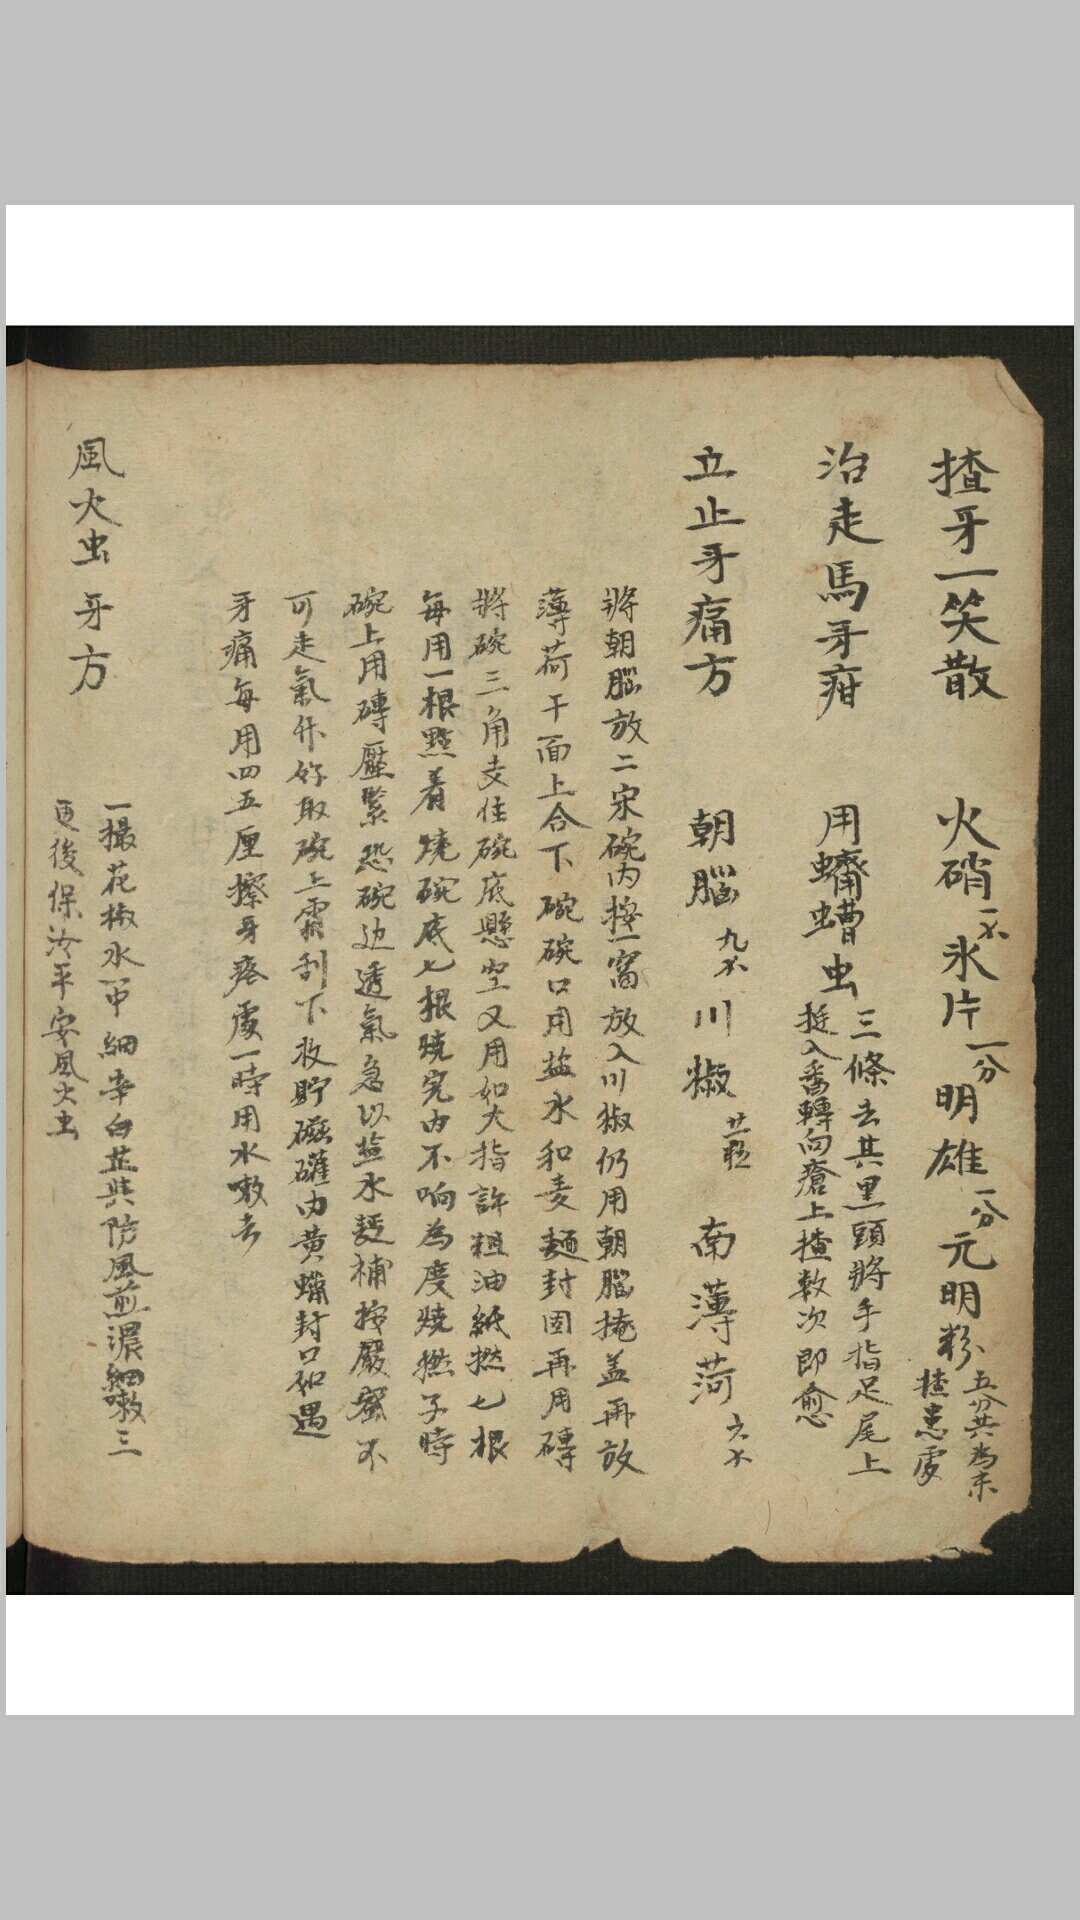 揸牙一笑散 火硝一木 氷片一分 明雄一分 元明粉五分共為末
揸患處
治走馬牙疳 用蠐螬虫三條去其黑頭將手指足尾上
挺入番轉向瘡上揸数次即愈
立止牙痛方 朝腦九木 川椒 南薄荷六木
將朝腦放二宋碗内按一窩放入川椒仍用朝腦掩盖再放
薄荷干面上合下碗碗口用盐水和麦麺封固再用磚
將碗三角支住碗底懸空又用如大指許粗油紙撚七根
每用一根點着燒碗底七根燒完内不响為度燒撚子時
碗上用磚壓緊恐碗边透氣急以盐水麺補按嚴密不
可走氣作好取碗上霜刮下收貯磁礶内黄蠟封口如遇
牙痛每用四五厘擦牙疼處一時用水嗽去
風火虫牙方
一撮花椒水中細辛白芷共防風煎濃細嗽三
更後保冷平安風火虫